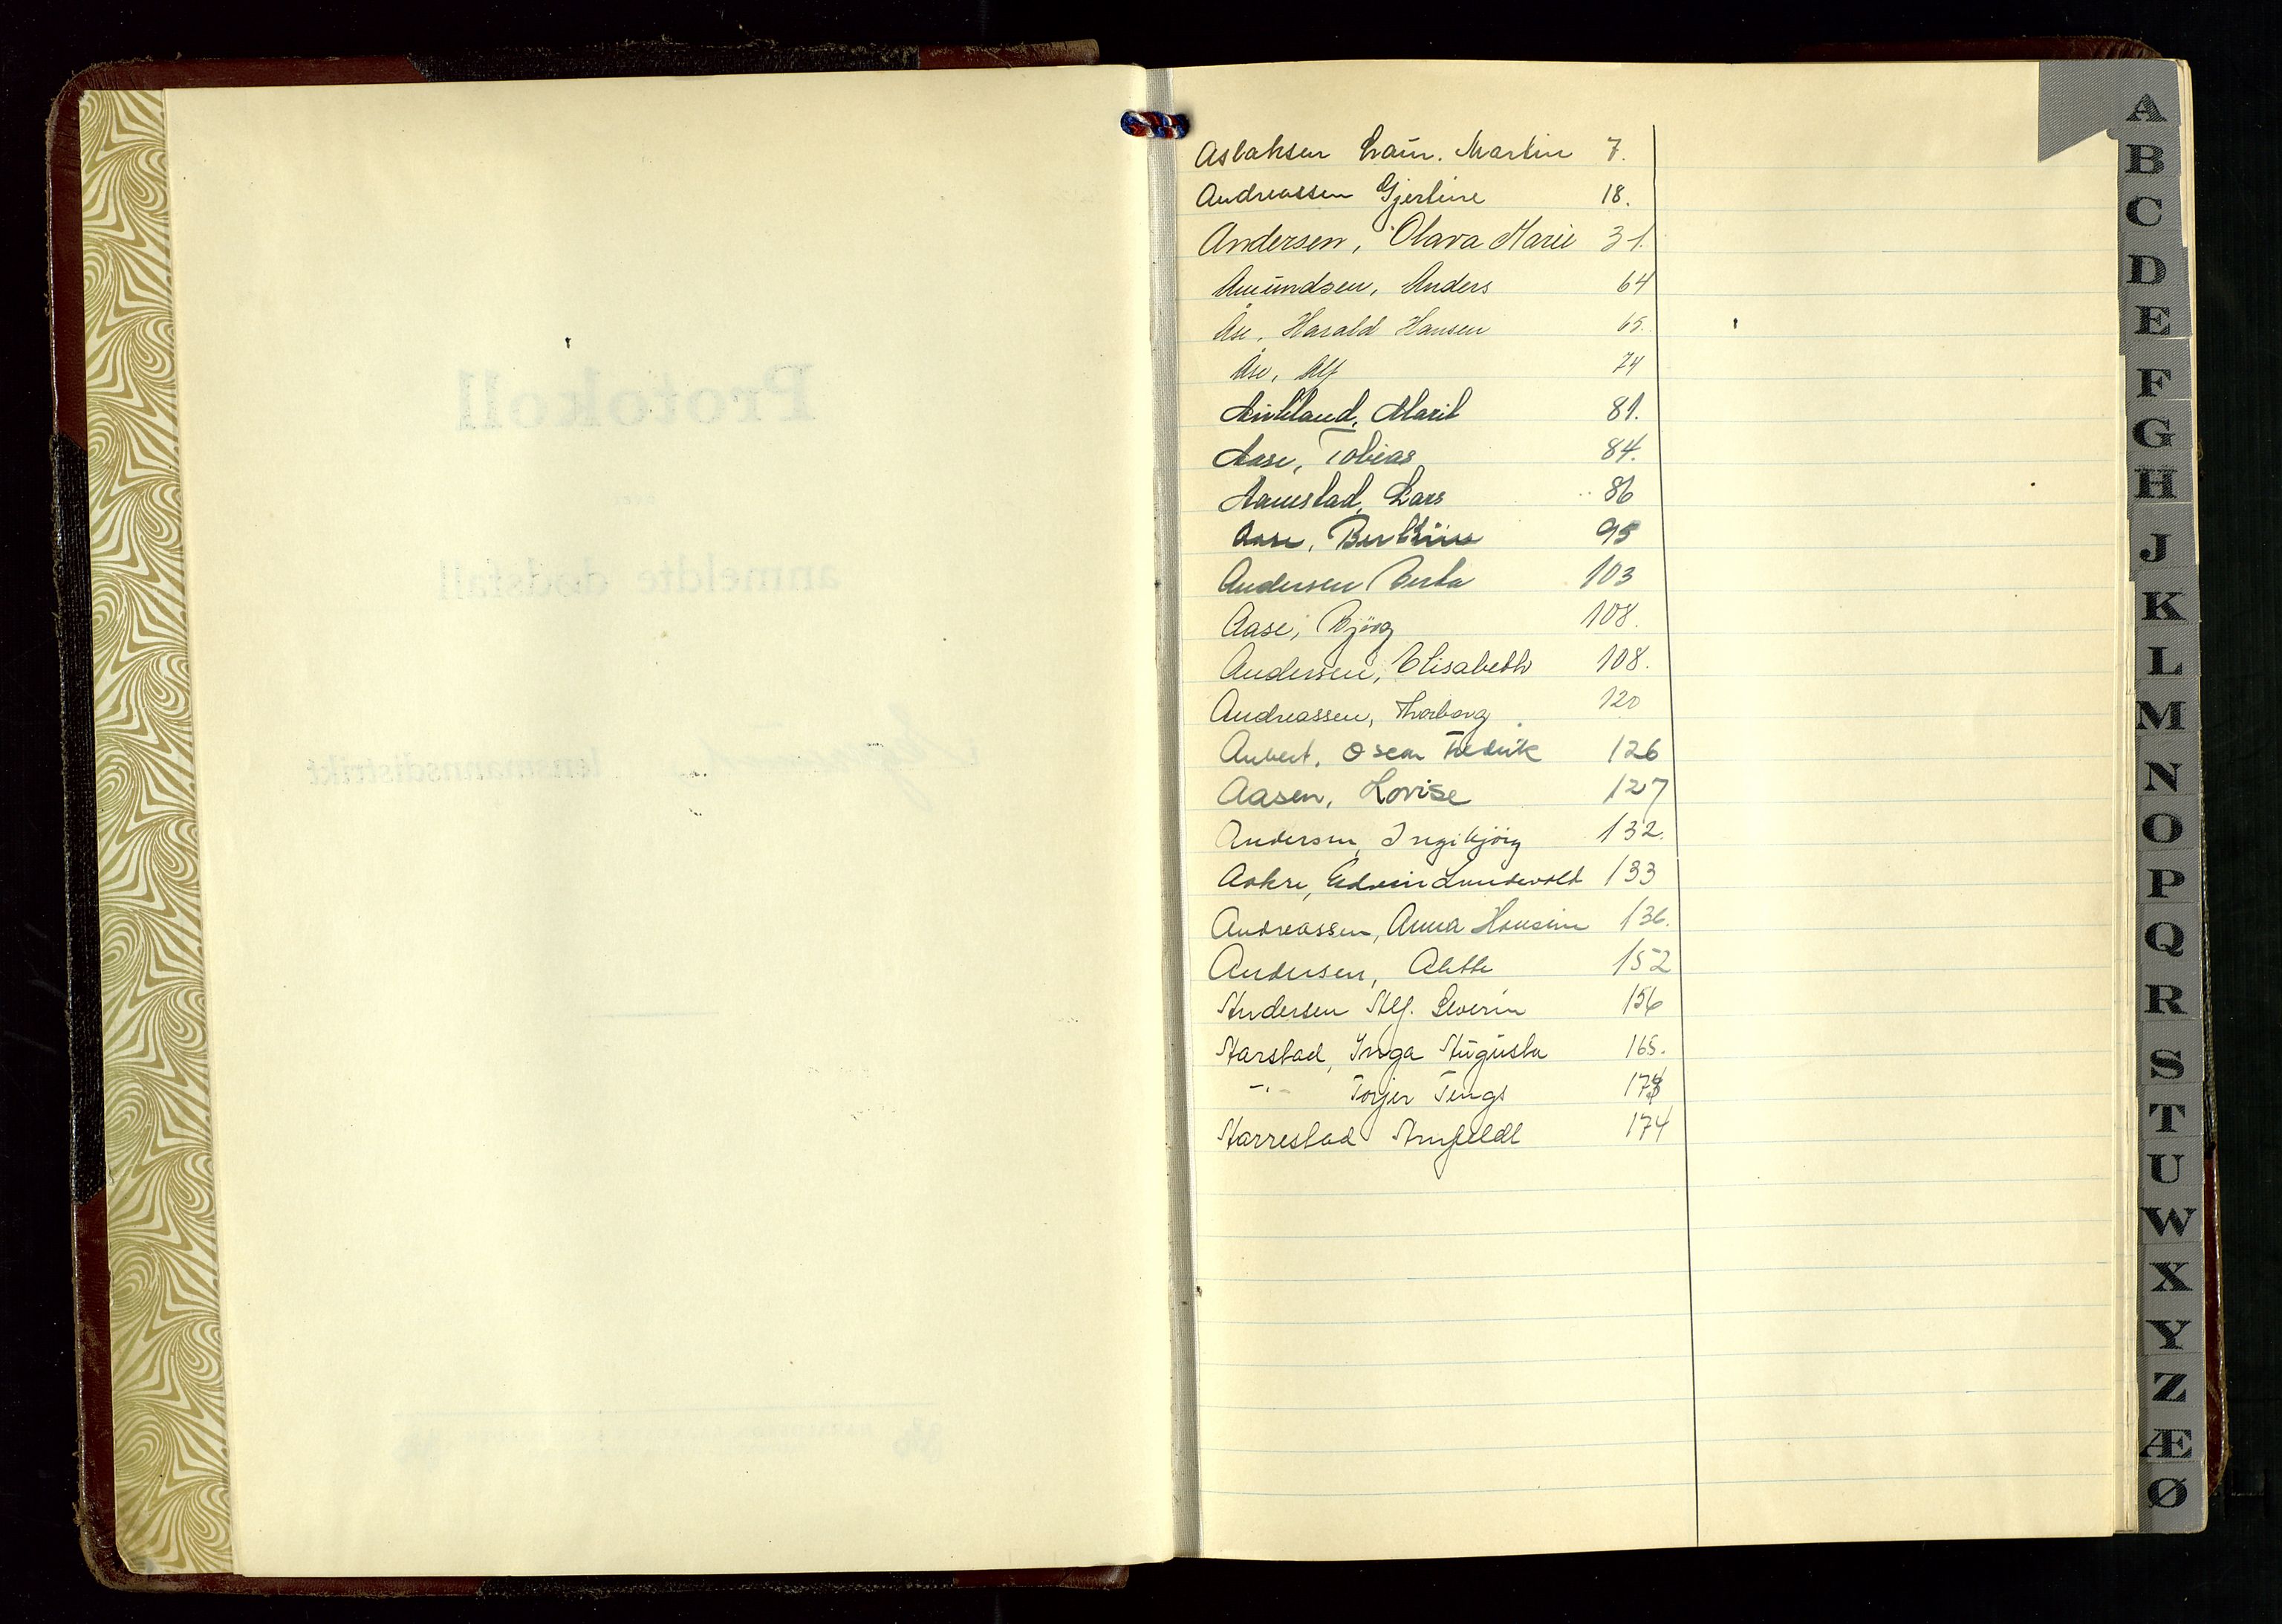 Aslaksen Laur. Martin 7.
Andreassen Gjertine 18.
Andersen, Olava Marie 31.
Amundsen, Anders 64
Åse, Harald Hansen 65.
Åse, Alf 74
Marit 81.
Aase, Tobias 84.
Aamstad, Lars 86
Aase, 95
Andersen Berta 103
Aase, Bjørg 108.
Andersen, Elisabeth 108.
Andreassen, Thorborg 120
Aubert, Oscar Fredrik 126
Aasen, Lovise 127
Andersen, Ingibjörg 132.
Aakre, Edvin Lundevold 133
Andreassen, Anna Hansine 136.
Andersen, Alette 152
Andersen Alf. Severin 156
Aarstad, Inga Augusta 165.
-"- Torjer Tengs
Aarrestad Arnfeldt 174
A
B
C
D
E
F
G
H
J
K
L
M
N
O
P
Q
R
S
T
U
W
X
Y
Z
Æ
Ø
Protokoll
over
anmeldte dødsfall
lensmannsdistrikt